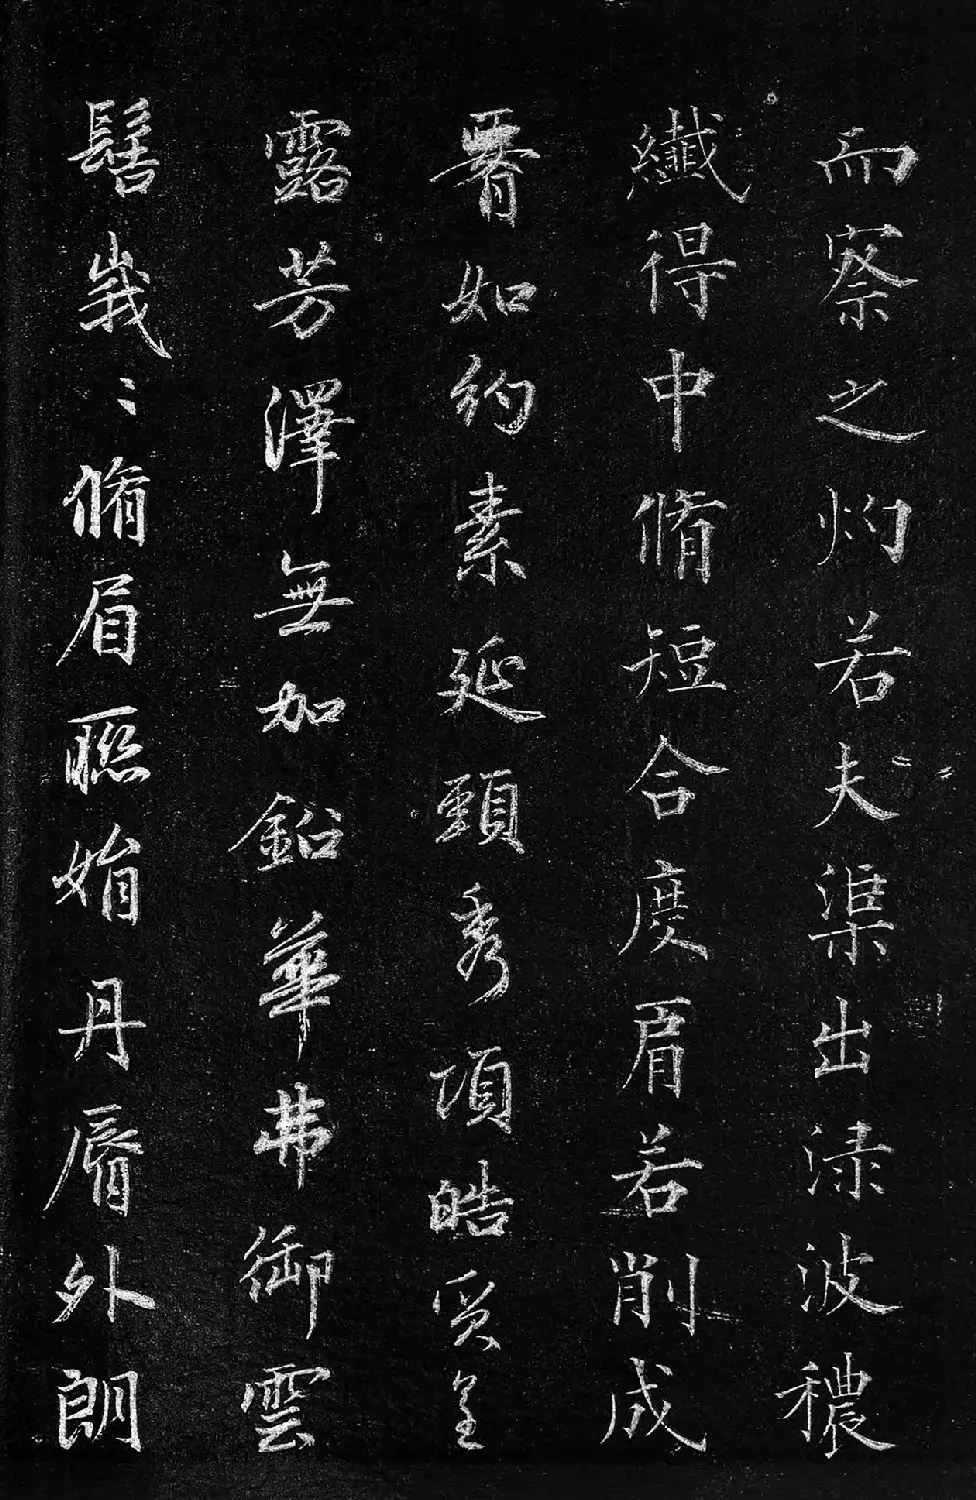 而察之灼若夫渠出渌波穠
纖得中脩短合度肩若削成
腰如約素延頸秀項皓質呈
露芳澤無加鉛華弗御雲
髻峩〻脩眉聯娟丹脣外朗